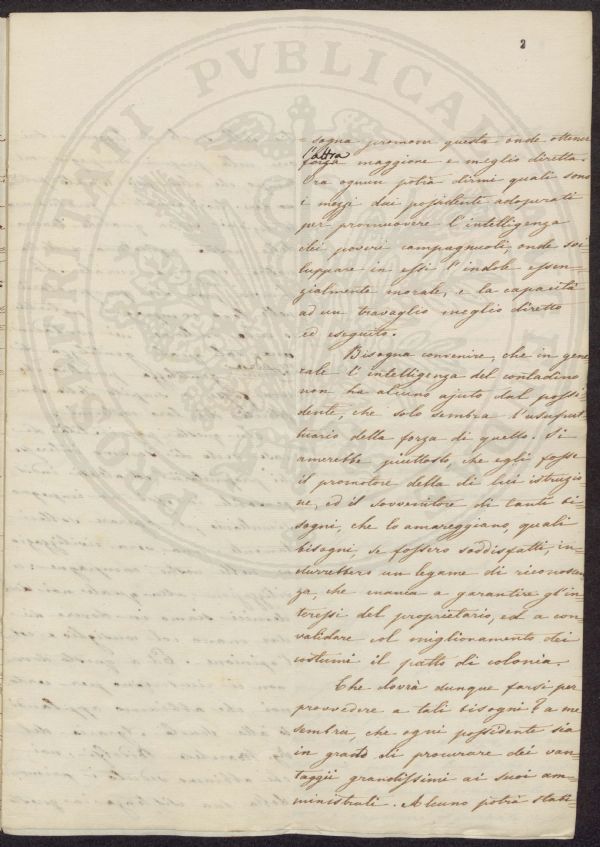 2
PROSPERITATI PVBLICAE
= sogna promover questa onde ottener
l'altra
forza maggiore e meglio diretta.
Ora ognun potrà dirmi quali sono
i mezzi dai possidenti adoperati
per promuovere l'intelligenza
dei poveri campagnuoli, onde svi=
luppare in essi l'indole essen=
zialmente morale, e la capacità
ad un travaglio meglio diretto
ed eseguito.
Bisogna convenire, che in gene=
rale l'intelligenza del contadino
non ha alcuno ajuto dal possi=
dente, che solo sembra l'usufrut=
tuario della forza di quello. Si
amerebbe piuttosto, che egli fosse
il promotore della di lui istruzio=
ne, ed il sovvenitore di tanti bi=
sogni, che lo amareggiano, quali
bisogni, se fossero soddisfatti, in=
durrebbero un legame di riconoscen=
za, che a garantire gl'in=
teressi del proprietario, ed a con=
validare col miglionamento dei
costumi il patto di colonia.
Che dovrà dunque farsi per
provvedere a tali bisogni? a me
sembra, che ogni possidente sia
in grado di procurare dei van=
taggii grandissimi ai suoi am=
ministrati. Alcuno potrà stabi=